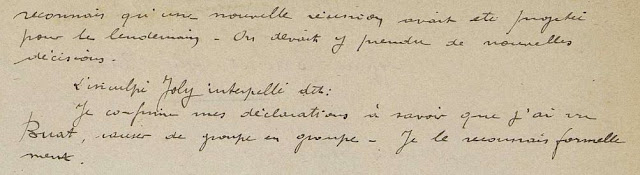 reconnais qu'une nouvelle réunion avait été projetée
pour le lendemain - On devait y prendre de nouvelles
décisions.
L'inculpé Joly interpellé dit :
Je confirme mes déclarations à savoir que j'ai vu
Buat, causer de groupe en groupe - Je le reconnais formelle
ment.